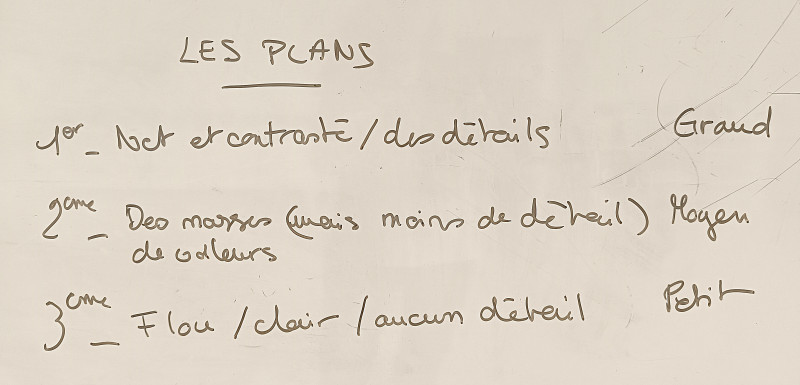 LES PLANS
1er - Net et contrasté / des détails Grand
2ème - Des masses (mais moins de détail) Moyen
de couleurs
3ème - Flou / clair / aucun détail Petit